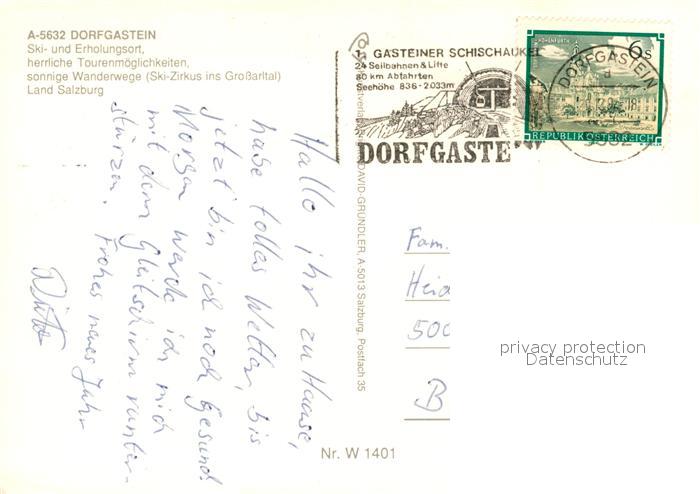 A-5632 DORFGASTEIN
Ski- und Erholungsort,
herrliche Tourenmöglichkeiten,
sonnige Wanderwege (Ski-Zirkus ins Großarltal)
Land Salzburg
1. GASTEINER SCHISCHAUKEL
24 Seilbahnen & Lifte
80 km Abfahrten
Seehöhe 836-2.033m
DORFGASTE
DORFGASTEIN
6s
REPUBLIK ÖSTERREICH
Hallo ihr zu Hause,
habe tolles Wetter, bis
jetzt bin ich noch gesund
Morgen werde ich mich
mit dem Gleitschirm runter-
stürzen. Frohes neues Jahr
DAVID-GRÜNDLER, A-5013 Salzburg, Postfach 35
Fam.
Heid
500
B
privacy protection
Datenschutz
Nr. W 1401